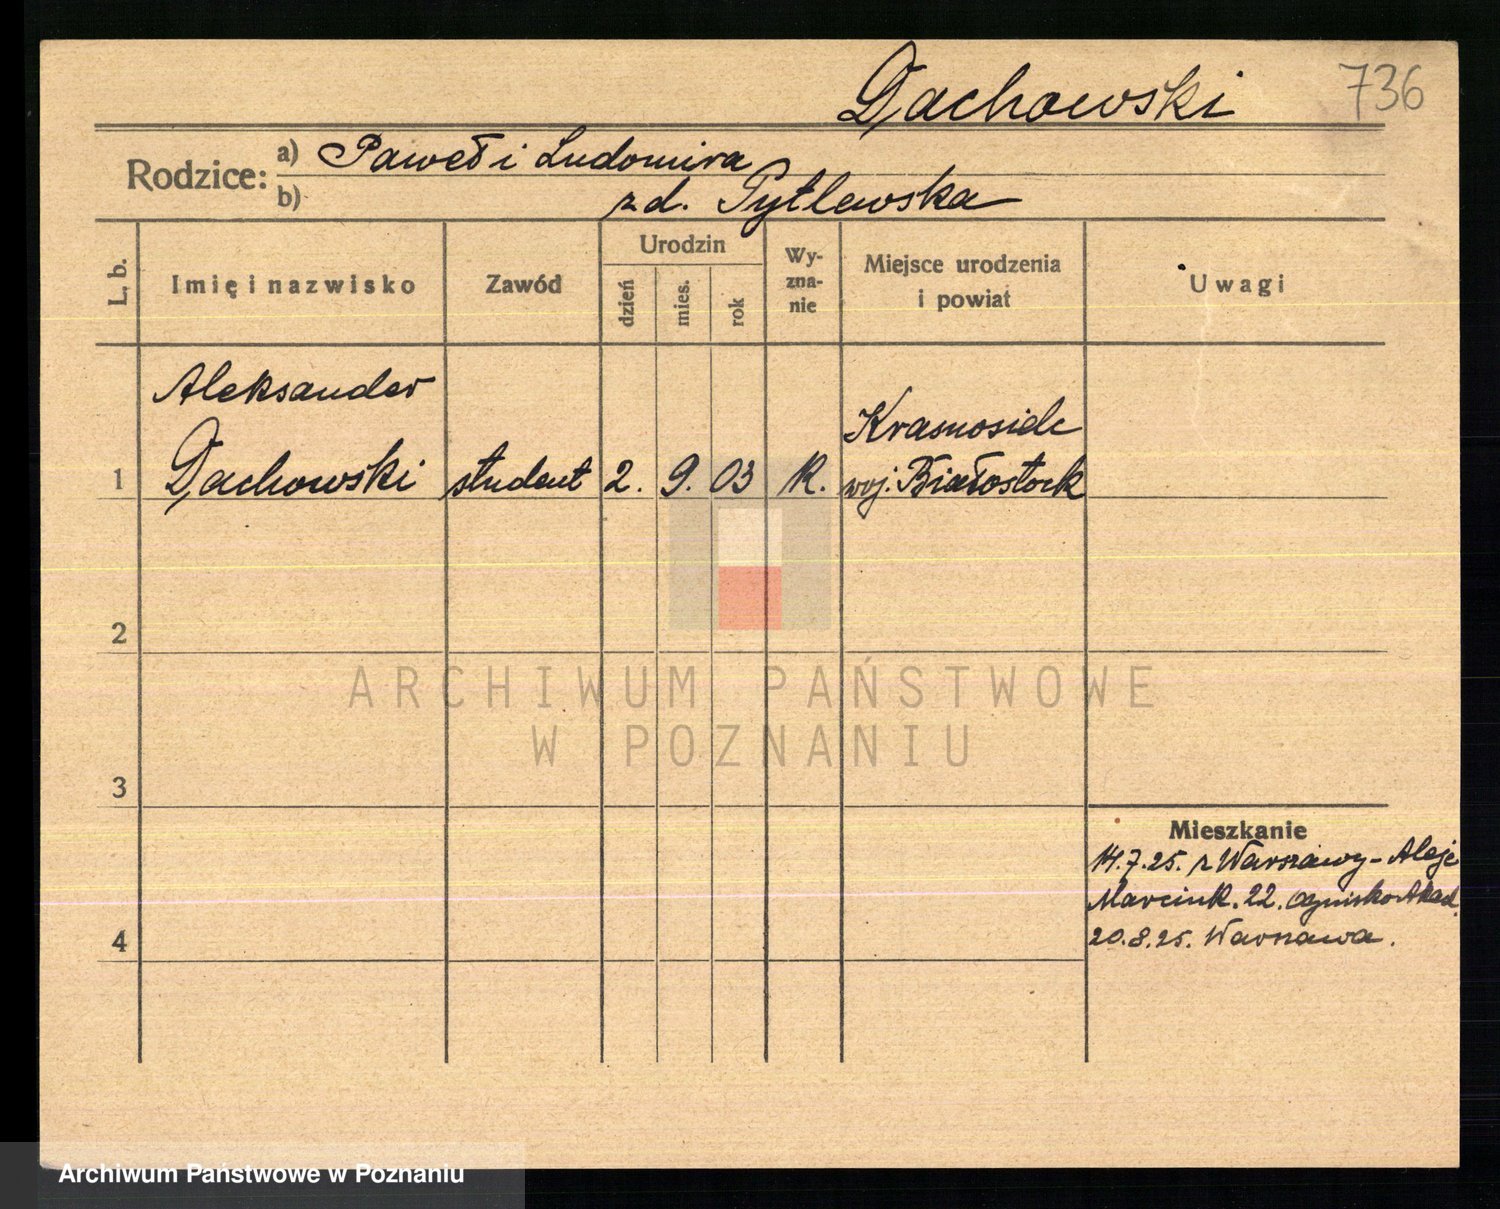 Dachowski 736
Rodzice: a) Paweł i Ludomira
b) zd. Pytlewska
L. b. Imię i nazwisko Zawód Urodzin dzień mies. rok Wyznanie Miejsce urodzenia i powiat Uwagi
Aleksander Krasnosielc
1 Dachowski student 2. 9. 03 k. woj. Białostock
2
ARCHIWUM PAŃSTWOWE
W POZNANIU
3
Mieszkanie
14.7.25. z Warszawy - Aleje
Marcink. 22. Ognisko Akad.
4 20.8.25. Warszawa.
Archiwum Państwowe w Poznaniu